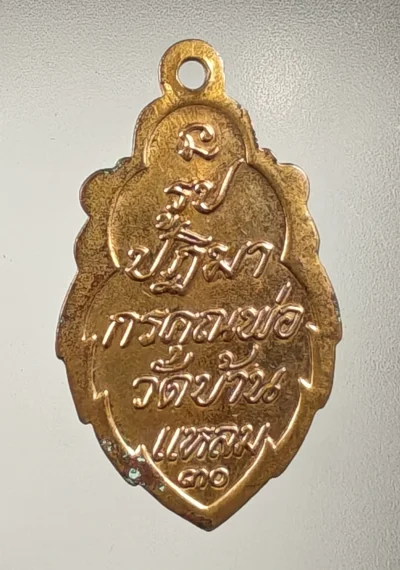 รูป
ปฏิมา
กรคุณพ่อ
วัดบ้าน
แหลม
๓๐